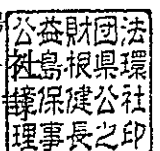 公益財団法
島根県環
境保健公社
理事長之印